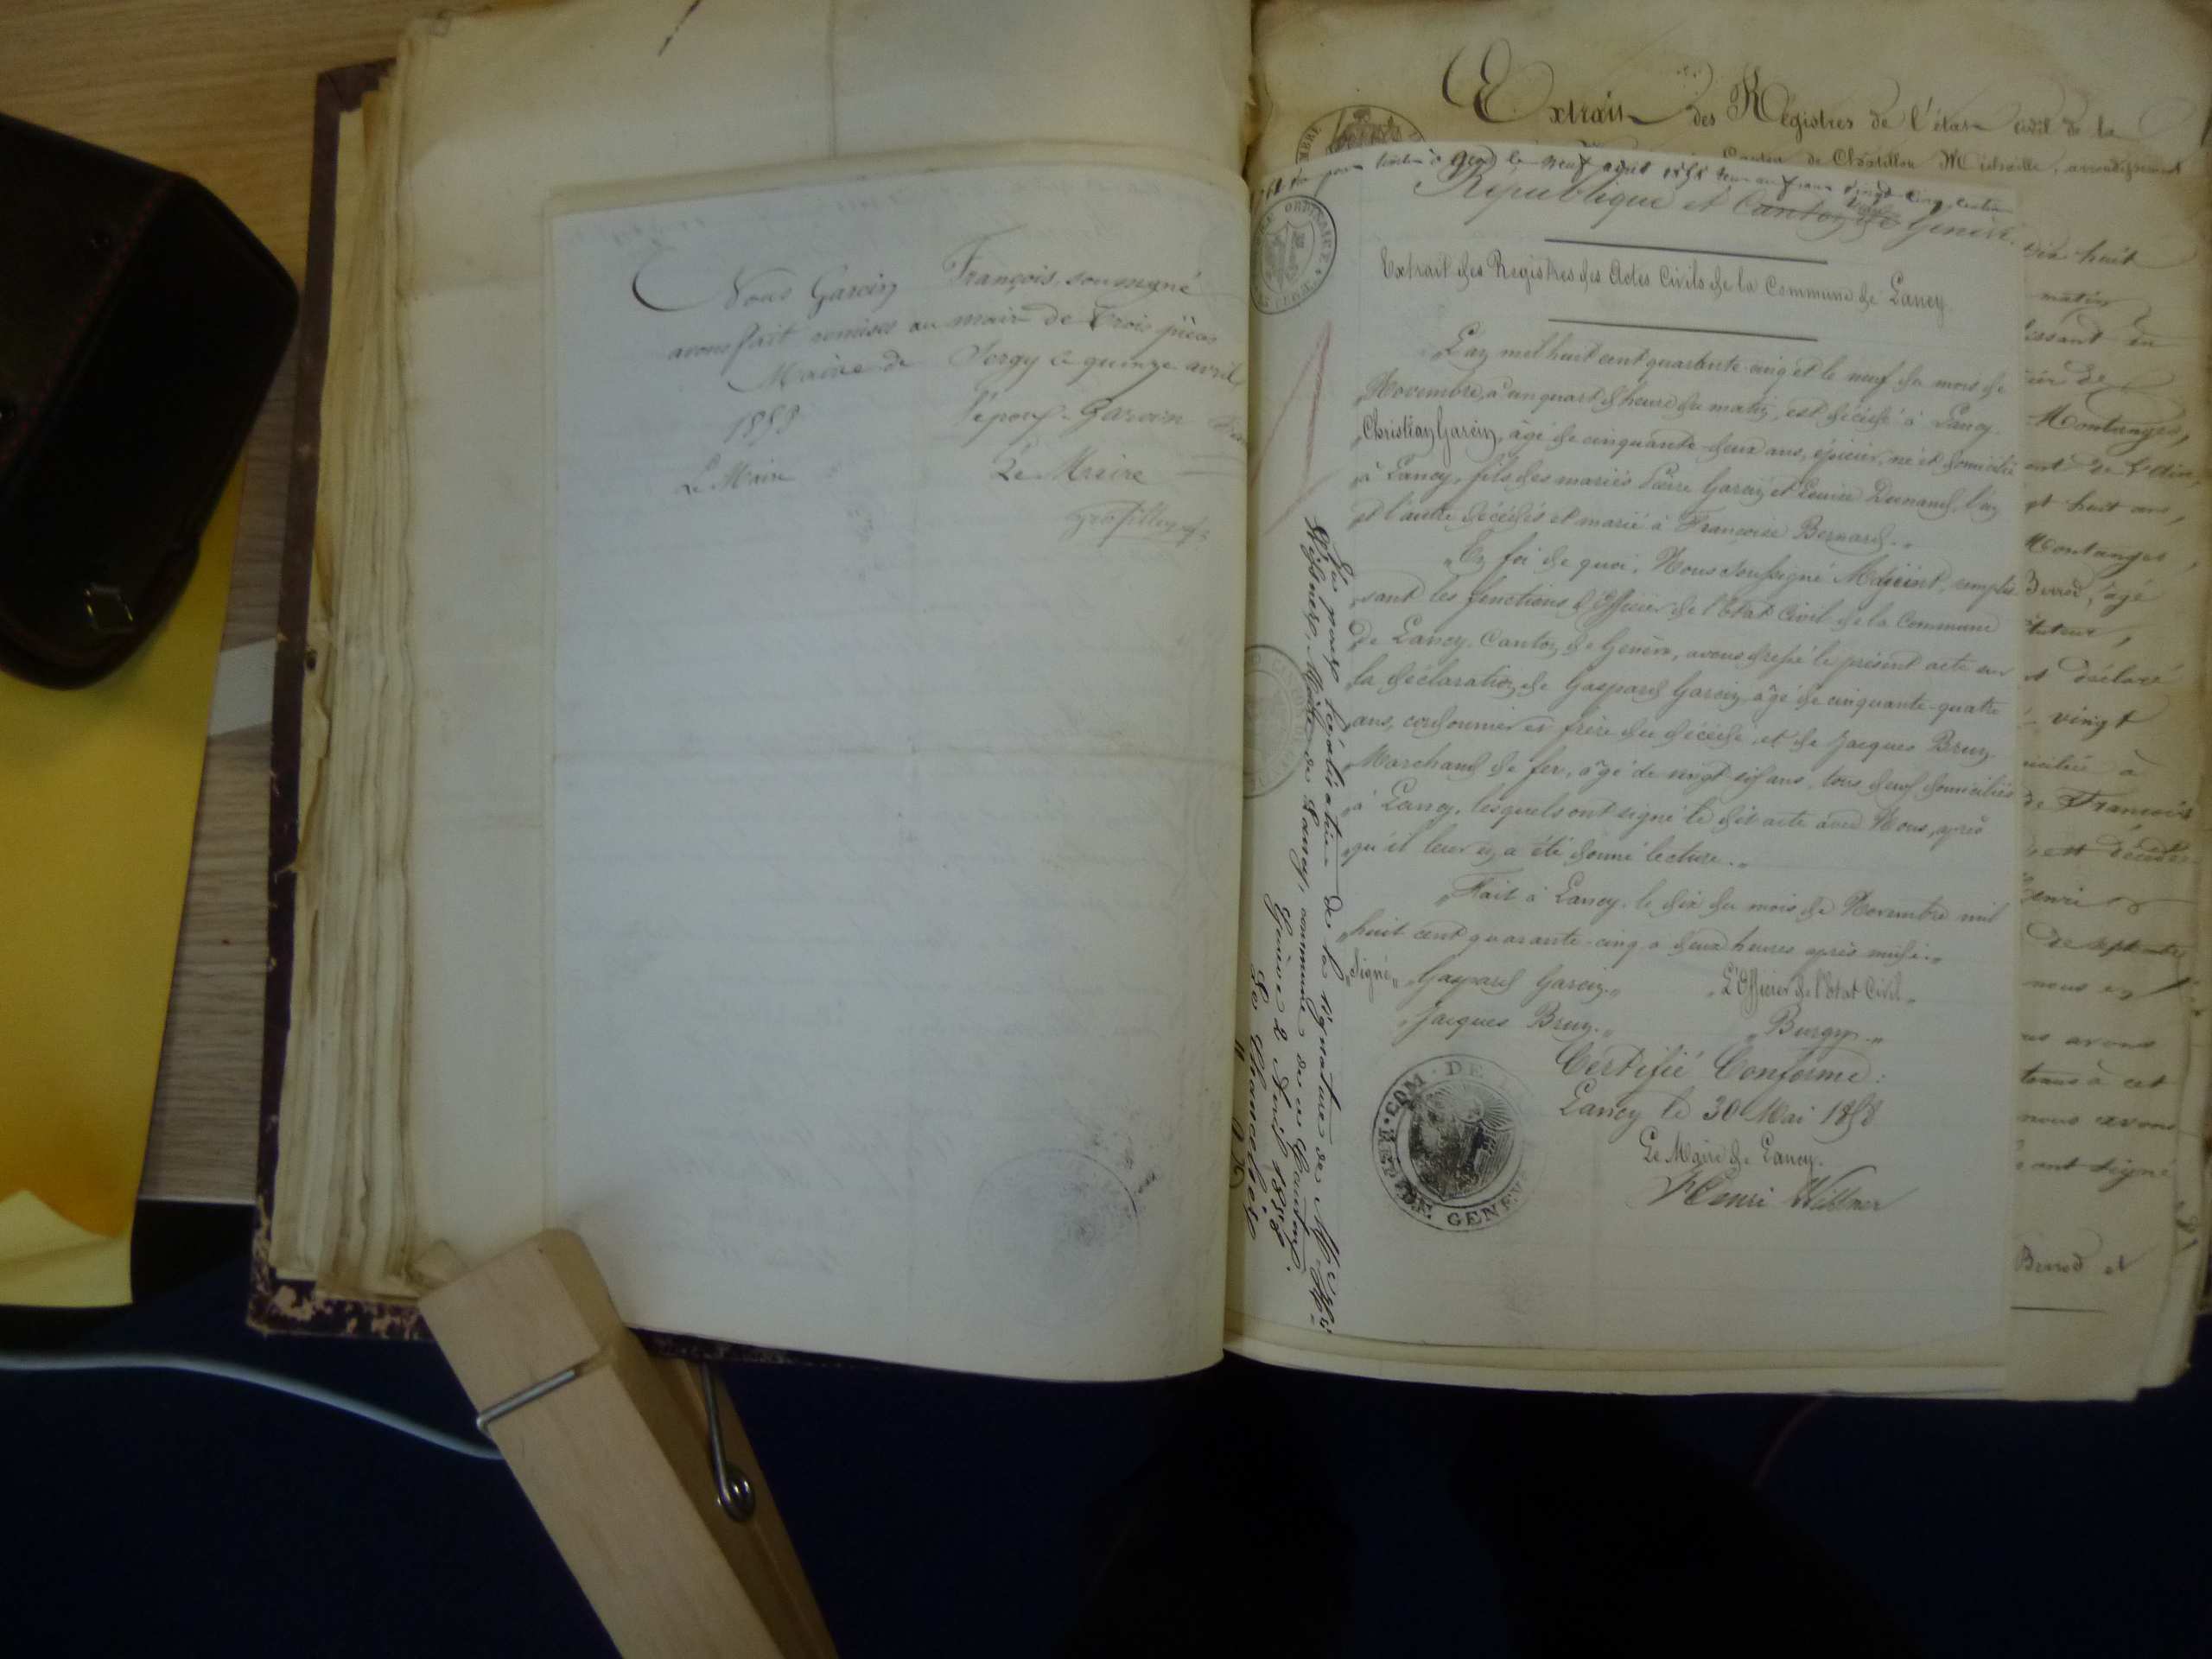 Nous Garcin François, soussigné
avons fait remises au mair de trois pièces
Maire de Sergy le quinze avril
1858 l'époux Garcin
Le Maire Le Maire
Extrait des Registres de l'état civil de la
Canton de Châtillon Michaille, arrondissement
le neuf avril 1858
vingt cinq centimes
République et Canton de Genève.
Extrait des Registres des Actes Civils de la Commune de Lancy.
L'an mil huit cent quarante-cinq et le neuf du mois de
Novembre, à un quart d'heure du matin, est décédé à Lancy
Christian Garcin, âgé de cinquante-deux ans, épicier, né et domicilié
à Lancy, fils des mariés Pierre Garcin et Louise Dunand, l'un
et l'autre décédés et marié à Françoise Bernard.
En foi de quoi, Nous soussigné Adjoint, remplis-
sant les fonctions d'Officier de l'Etat Civil de la Commune
de Lancy, Canton de Genève, avons dressé le présent acte sur
la déclaration de Gaspard Garcin âgé de cinquante-quatre
ans, cordonnier et frère du décédé, et de Jacques Brun
Marchand de fer, âgé de vingt six ans, tous deux domiciliés
à Lancy, lesquels ont signé le dit acte avec Nous, après
qu'il leur en a été donné lecture.
Fait à Lancy, le dix du mois de Novembre mil
huit cent quarante-cinq à deux heures après midi.
"Signé" Gaspard Garcin. L'Officier de l'Etat Civil
Jacques Brun. Burgy.
Certifié Conforme:
Lancy le 30 Mai 1858
Le Maire de Lancy.
Henri Wissner
COM. DE
GENEVE
Vu pour légalisation de la signature de Mr. Hri
Wissner, Maire de Lancy, commune de ce Canton.
Genève 2 Avril 1858
Le Chancelier
dix huit
matin
Montanges,
huit ans,
Montanges,
Berrod, âgé
déclaré
vingt
de François
est décédé
nous en
avons
nous avons
ont signé
Berrod et